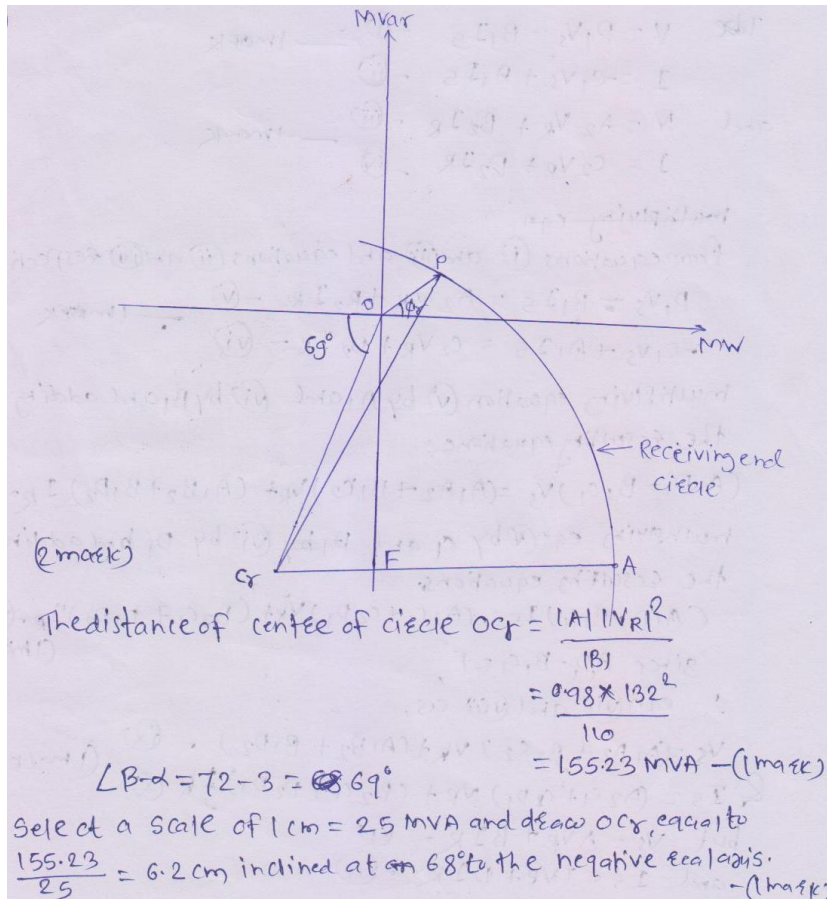 Mvar
P
O
φr
MW
69°
Receiving end
circle
(2mark)
Cr
F
A
The distance of centre of circle OCr = |A| |VR|²
|B|
= 0.98 × 132²
110
= 155.23 MVA -(1mark)
∠B-α = 72-3 = 69°
Select a scale of 1cm = 25 MVA and draw OCr, equal to
155.23
25
= 6.2 cm inclined at 68° to the negative real axis.
-(1mark)